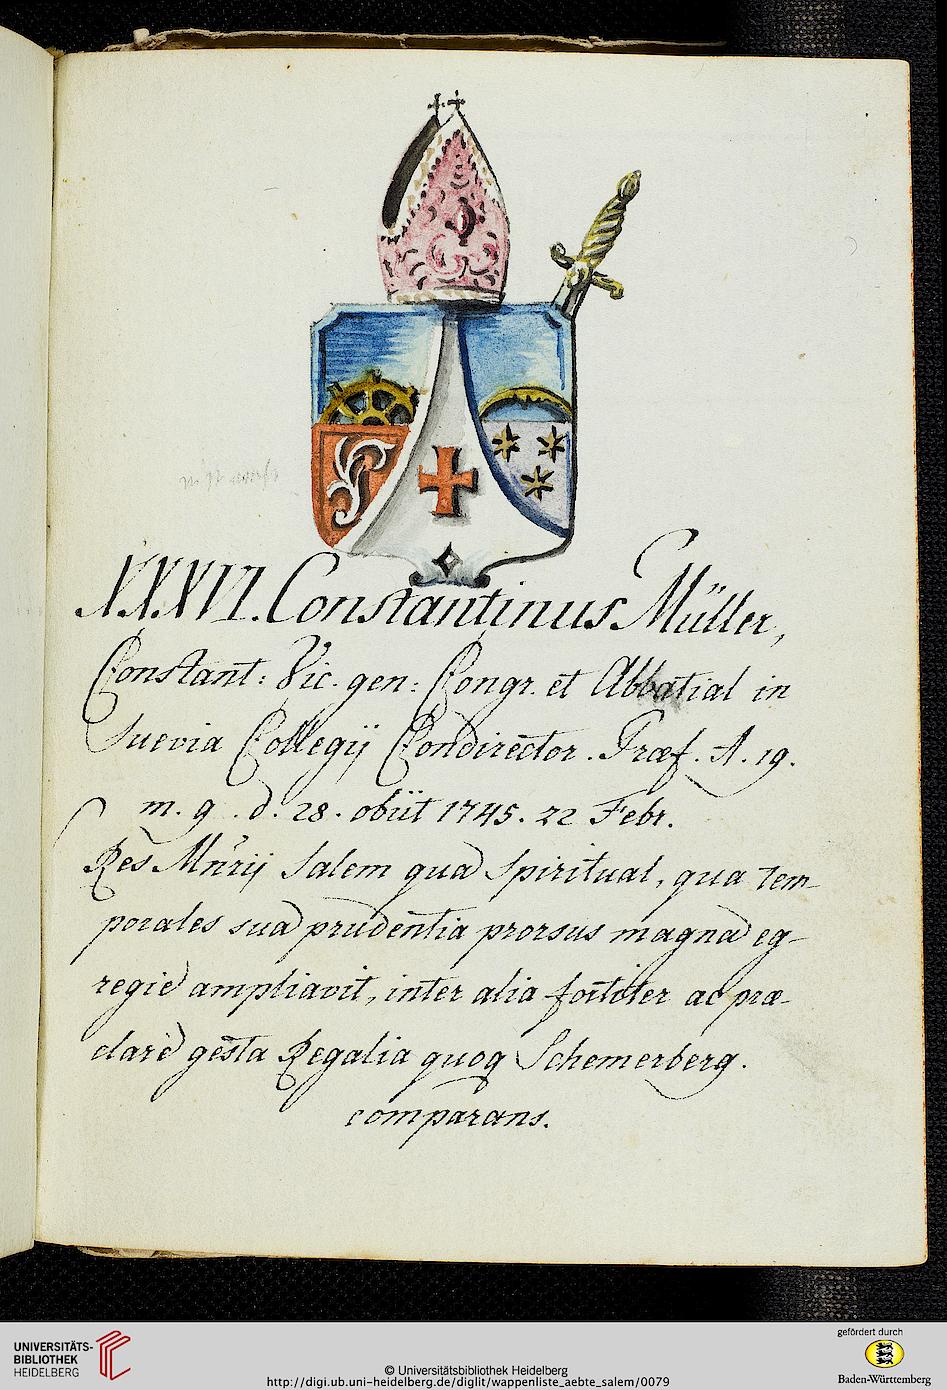 XXXVI. Constantinus Müller,
Constant: Vic. gen: Congr. et Abbatial in
Suevia Collegij Condirector. Præf. A. 19.
m. 9. d. 28. obiit 1745. 22 Febr.
Res Mñrij Salem qua spiritual, qua tem-
porales sua prudentia prorsus magna eg-
regie ampliavit, inter alia fortiter ac præ-
clare gesta Regalia quoq Schemerberg.
comparans.
UNIVERSITÄTS-
BIBLIOTHEK
HEIDELBERG
© Universitätsbibliothek Heidelberg
http://digi.ub.uni-heidelberg.de/diglit/wappenliste_aebte_salem/0079
gefördert durch
Baden-Württemberg